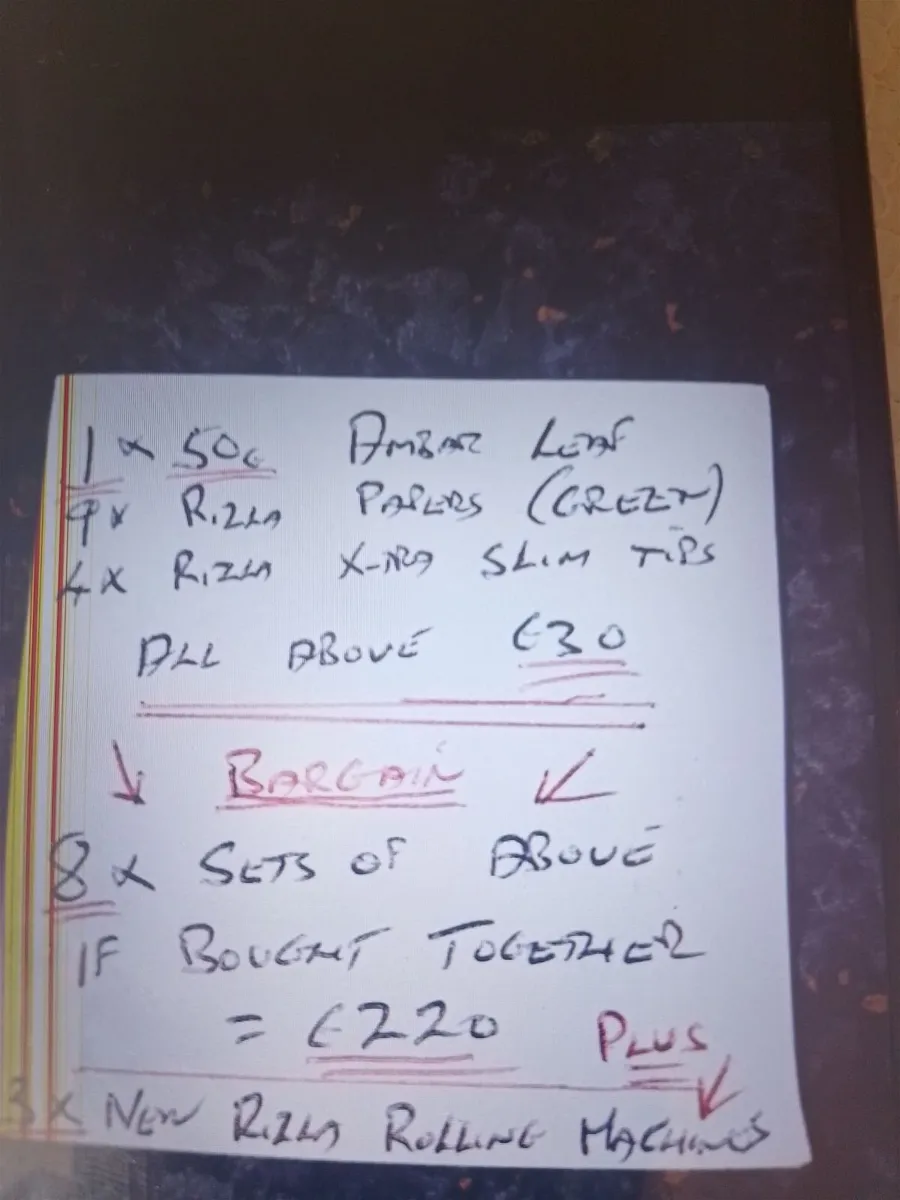 1 x 50G AMBAR LEAF
9x RIZLA PAPERS (GREEN)
4x RIZLA X-TRA SLIM TIPS
ALL ABOVE €30
BARGAIN
8x SETS OF ABOVE
IF BOUGHT TOGETHER
= €220 PLUS
3x NEW RIZLA ROLLING MACHINES